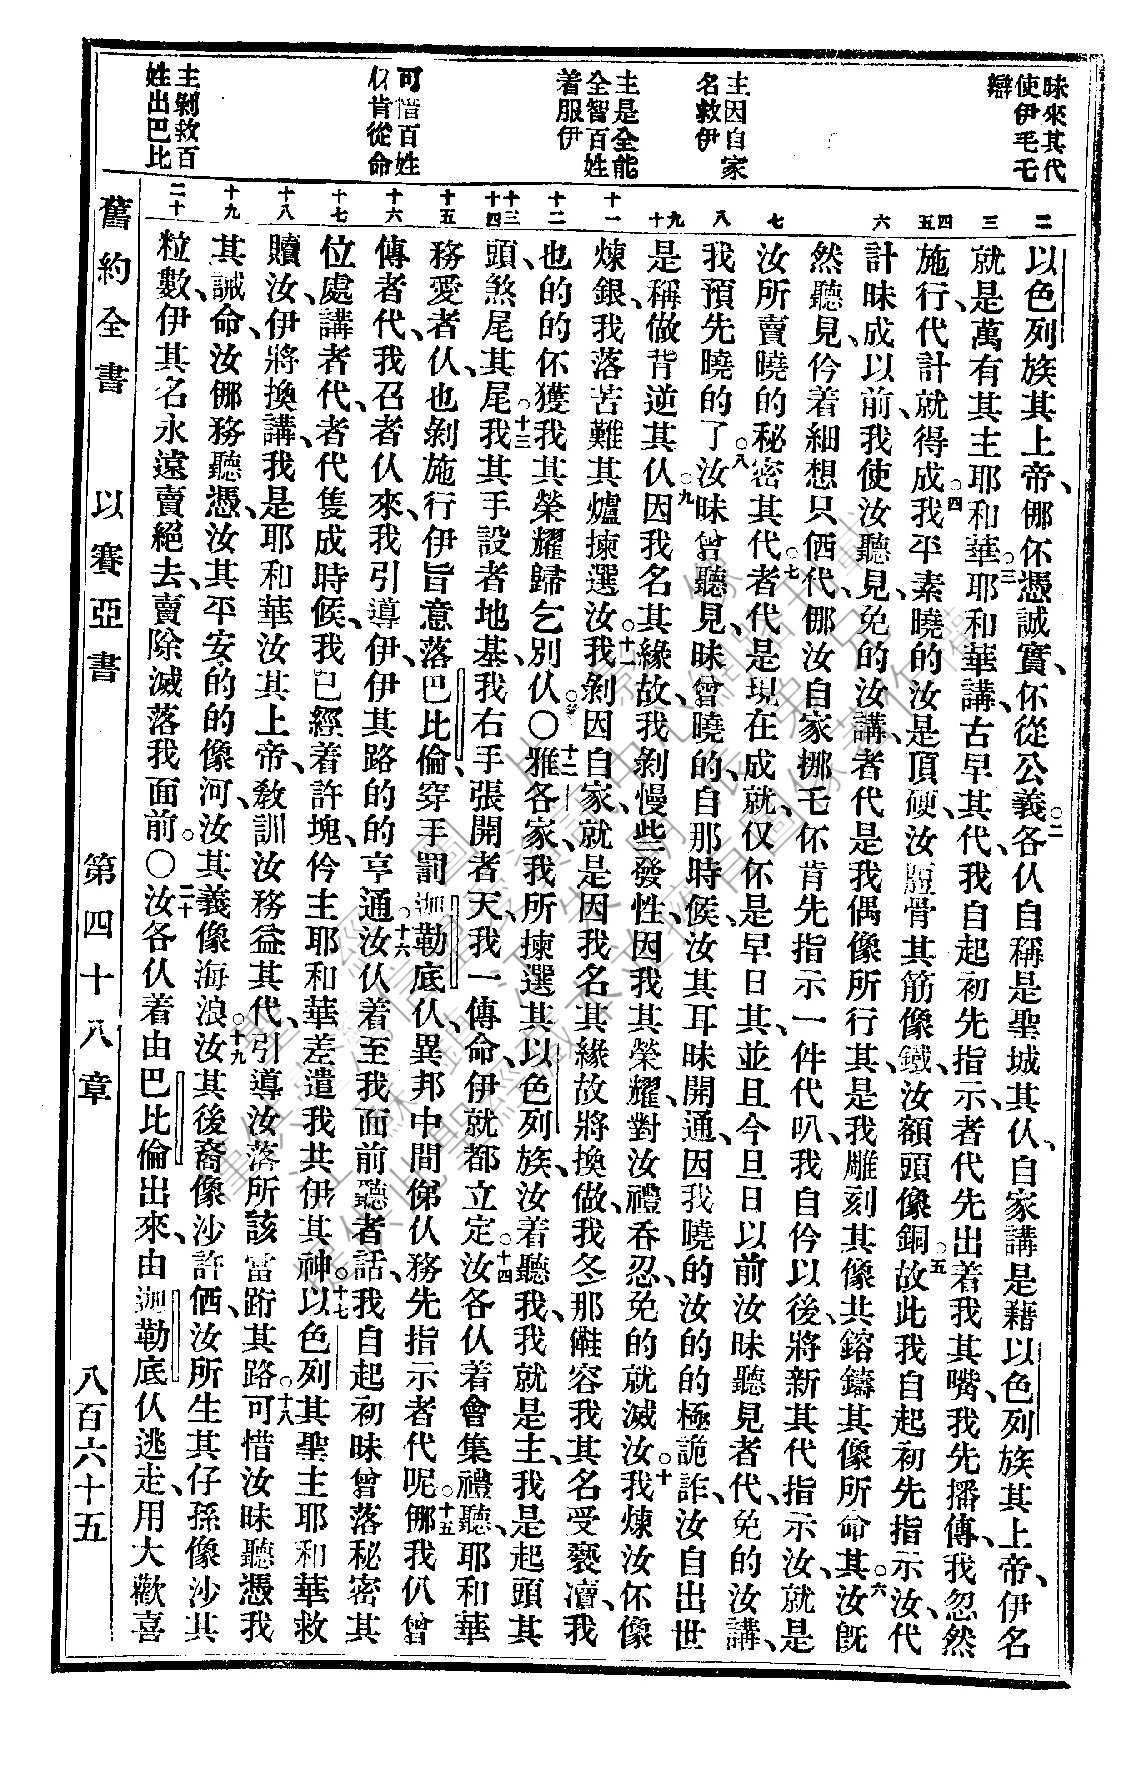 昧來其代
使伊毛乇
辯
主因自家
名救伊
主是全能
全智百姓
着服伊
可惜百姓
伓肯從命
主剝救百
姓出巴比
二
三
四 五
六
七
八
九 十
十一
十二
十三 十四
十五
十六
十七
十八
十九
二十
以色列族其上帝、㑚伓憑誠實、伓從公義。二各仈自稱是聖城其仈、自家講是藉以色列族其上帝、伊名
就是萬有其主耶和華。三耶和華講、古早其代、我自起初先指示、者代先出着我其嘴、我先播傳、我忽然
施行、代計就得成。四我平素曉的汝是頂硬、汝脰骨其筋像鐵、汝額頭像銅。五故此我自起初先指示汝、代
計昧成以前、我使汝聽見、免的汝講、者代是我偶像所行其、是我雕刻其像共鎔鑄其像所命其。六汝旣
然聽見、伱着細想只㐻代、㑚汝自家挪乇伓肯先指示一件代叭、我自伱以後、將新其代指示汝、就是
汝所賣曉的秘密其代。七者代是現在成就、仅伓是早日其、並且今旦日以前汝昧聽見者代、免的汝講、
我預先曉的了。八汝昧曾聽見、昧曾曉的、自那時候、汝其耳昧開通、因我曉的汝的的極詭詐、汝自出世
是稱做背逆其仈。九因我名其緣故、我剝慢些發性、因我其榮耀、對汝禮吞忍、免的就滅汝。十我煉汝伓像
煉銀、我落苦難其爐揀選汝。十一我剝因自家、就是因我名其緣故將換做、我冬那儺容我其名受褻瀆、我
也的的伓獲我其榮耀歸乞別仈。○十二雅各家、我所揀選其以色列族、汝着聽我、我就是主、我是起頭其
頭、煞尾其尾。十三我其手設者地基、我右手張開者天、我一傳命、伊就都立定。十四汝各仈着會集禮聽、耶和華
務愛者仈、也剝施行伊旨意落巴比倫、穿手罰迦勒底仈、異邦中間俤仈務先指示者代呢。十五㑚我仈曾
傳者代、我召者仈來、我引導伊、伊其路的的亨通。十六汝仈着至我面前聽者話、我自起初昧曾落秘密其
位處講者代、者代隻成時候、我已經着許塊、伱主耶和華差遣我共伊其神。十七以色列其聖主耶和華救
贖汝、伊將換講、我是耶和華汝其上帝、敎訓汝務益其代、引導汝落所該當跲其路。十八可惜汝昧聽憑我
其誡命、汝㑚務聽憑、汝其平安的的像河、汝其義像海浪。十九汝其後裔像沙許㐻、汝所生其仔孫像沙其
粒數、伊其名永遠賣絕去、賣除滅落我面前。○二十汝各仈着由巴比倫出來、由迦勒底仈逃走、用大歡喜
舊約全書 以賽亞書 第四十八章 八百六十五